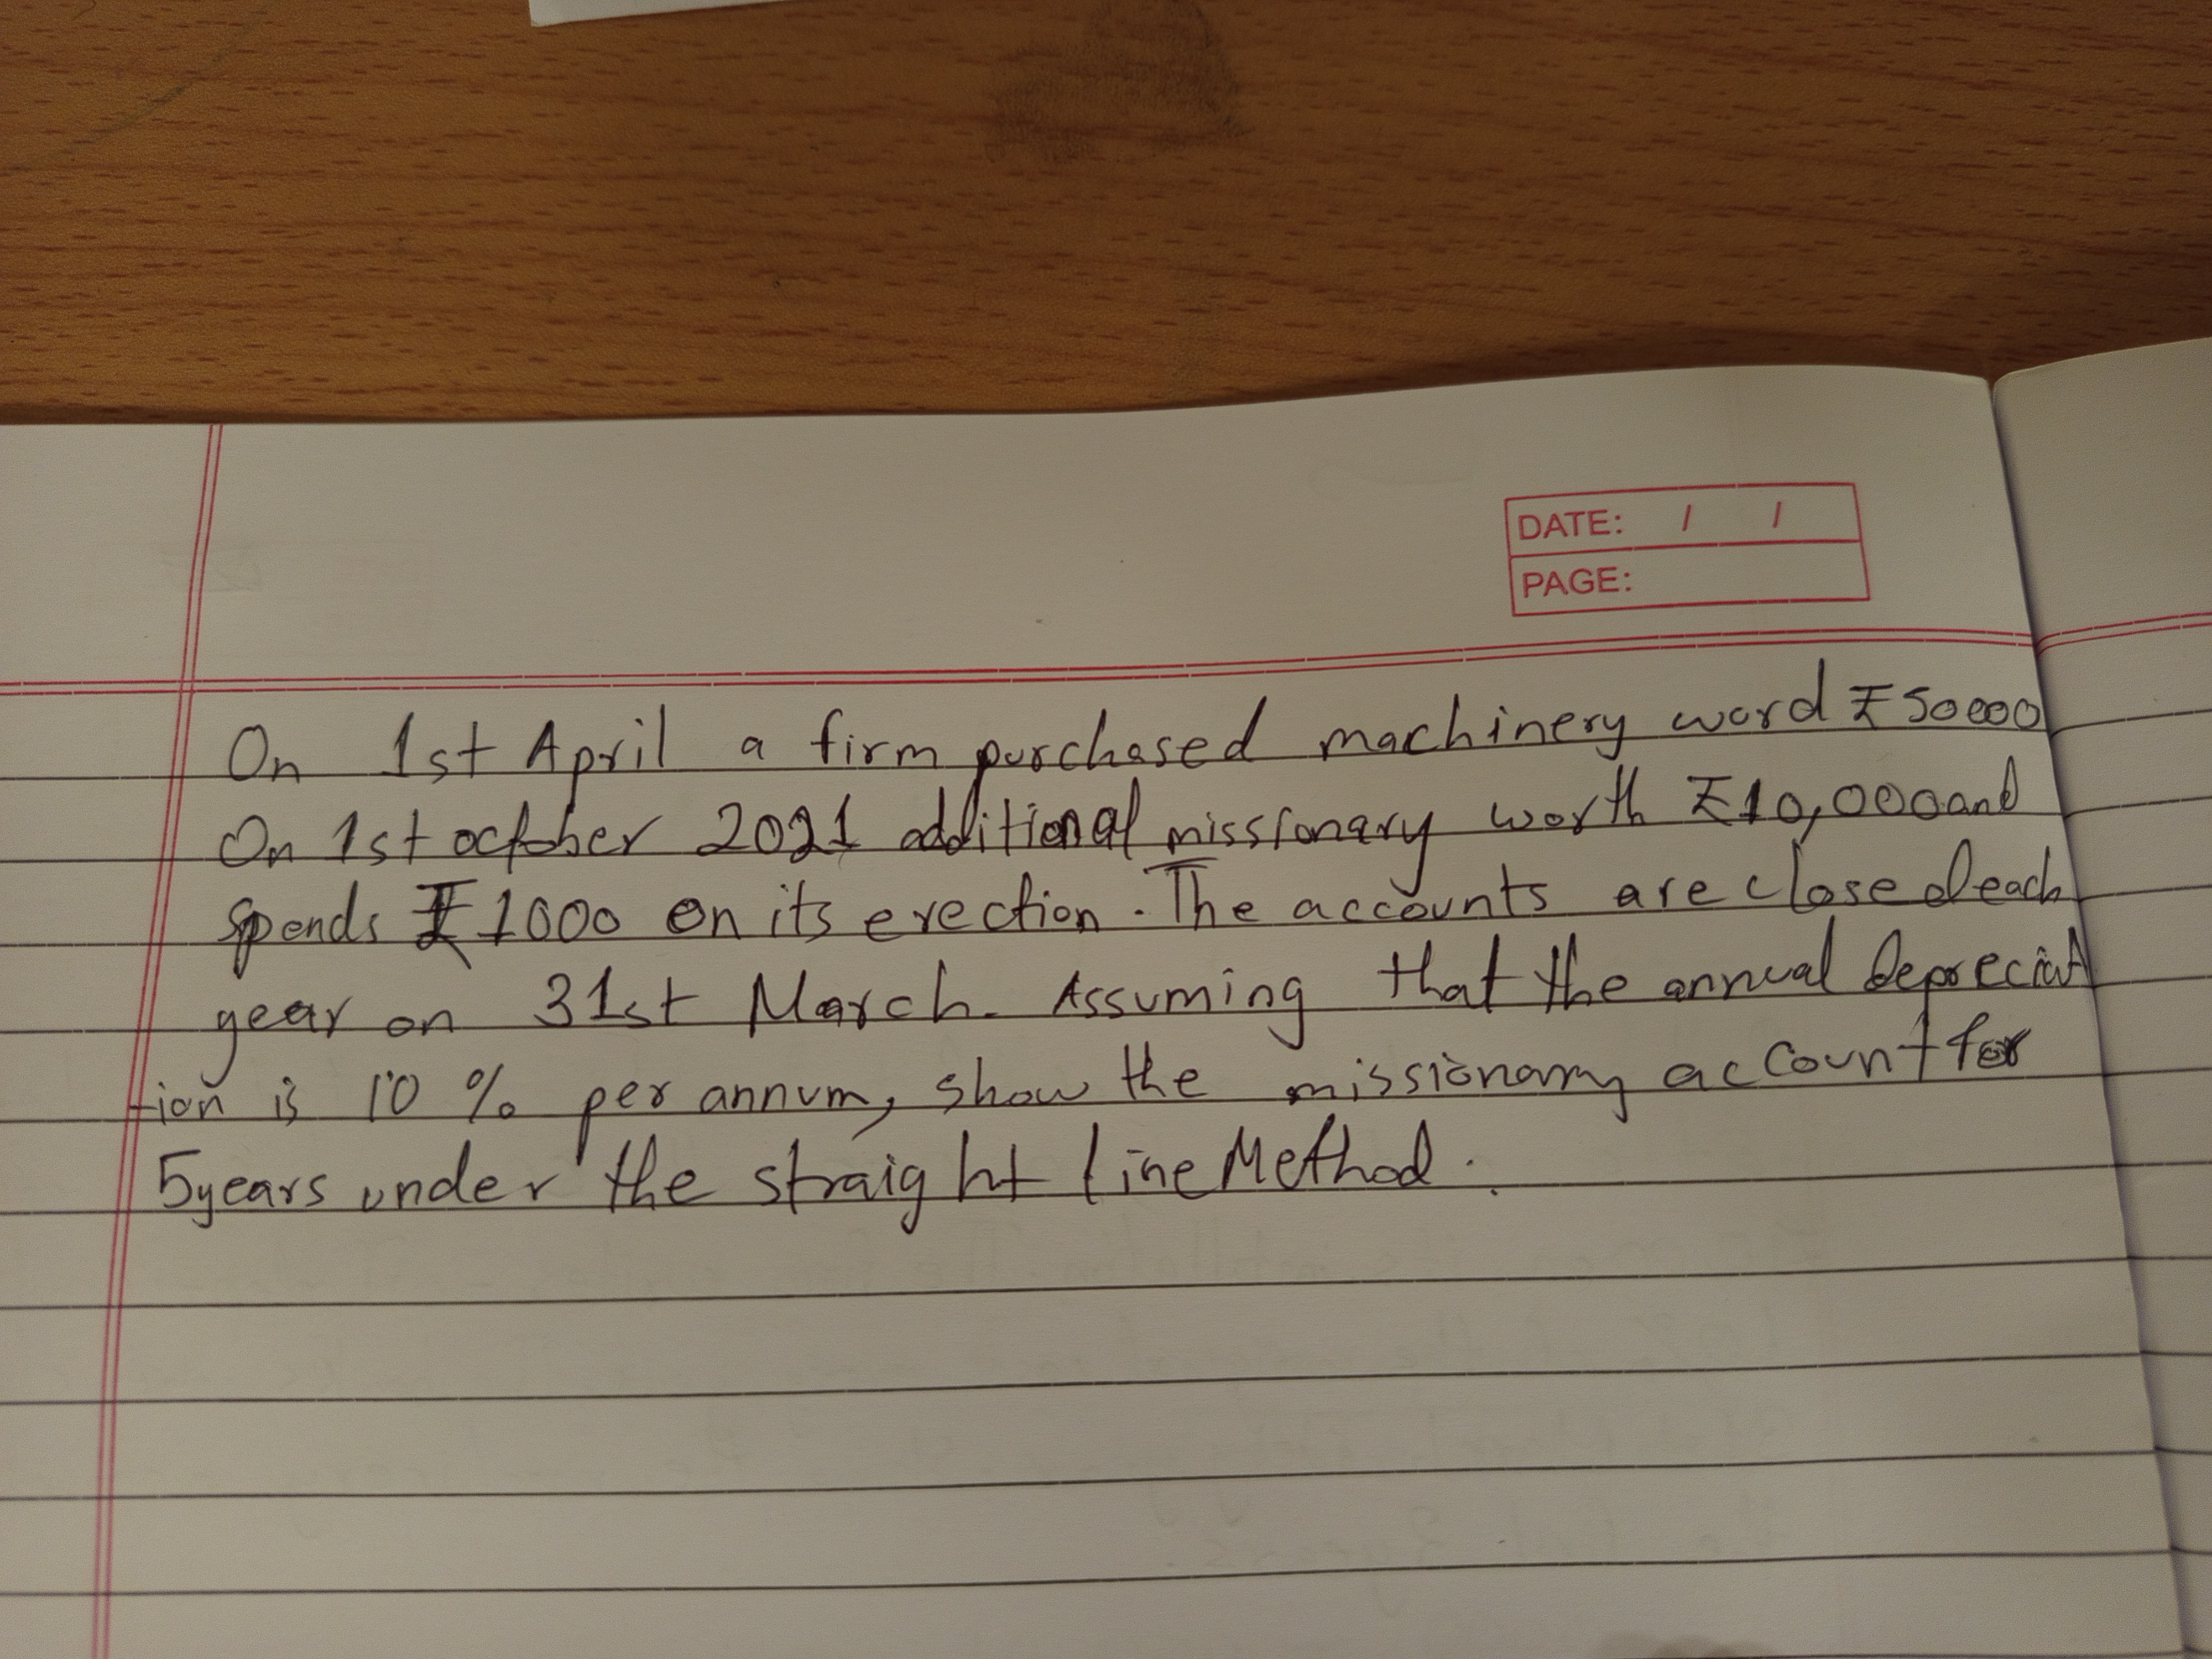 DATE: / /
PAGE:
On 1st April a firm purchased machinery word ₹50000
On 1st october 2021 additional missionary worth ₹10,000 and
spends ₹1000 on its erection. The accounts are closed each
year on 31st March. Assuming that the annual depreciat
ion is 10 % per annum, show the missionary account for
5years under the straight line Method.